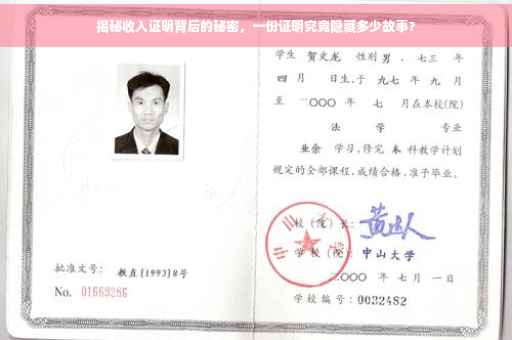 揭秘收入证明背后的秘密，一份证明究竟隐藏多少故事？
学生 贺文龙 性别 男，七三 年
四 月 日生，于 九七 年 九 月
至 二〇〇〇 年 七 月在本校(院)
法 学 专业
业余 学习，修完 本 科教学计划
规定的全部课程，成绩合格，准予毕业。
校（院）长：
学 校（院）：中山大学
二〇〇〇 年 七 月 一 日
学校编号：0032482
批准文号：教直[1993]8号
No. 01663286